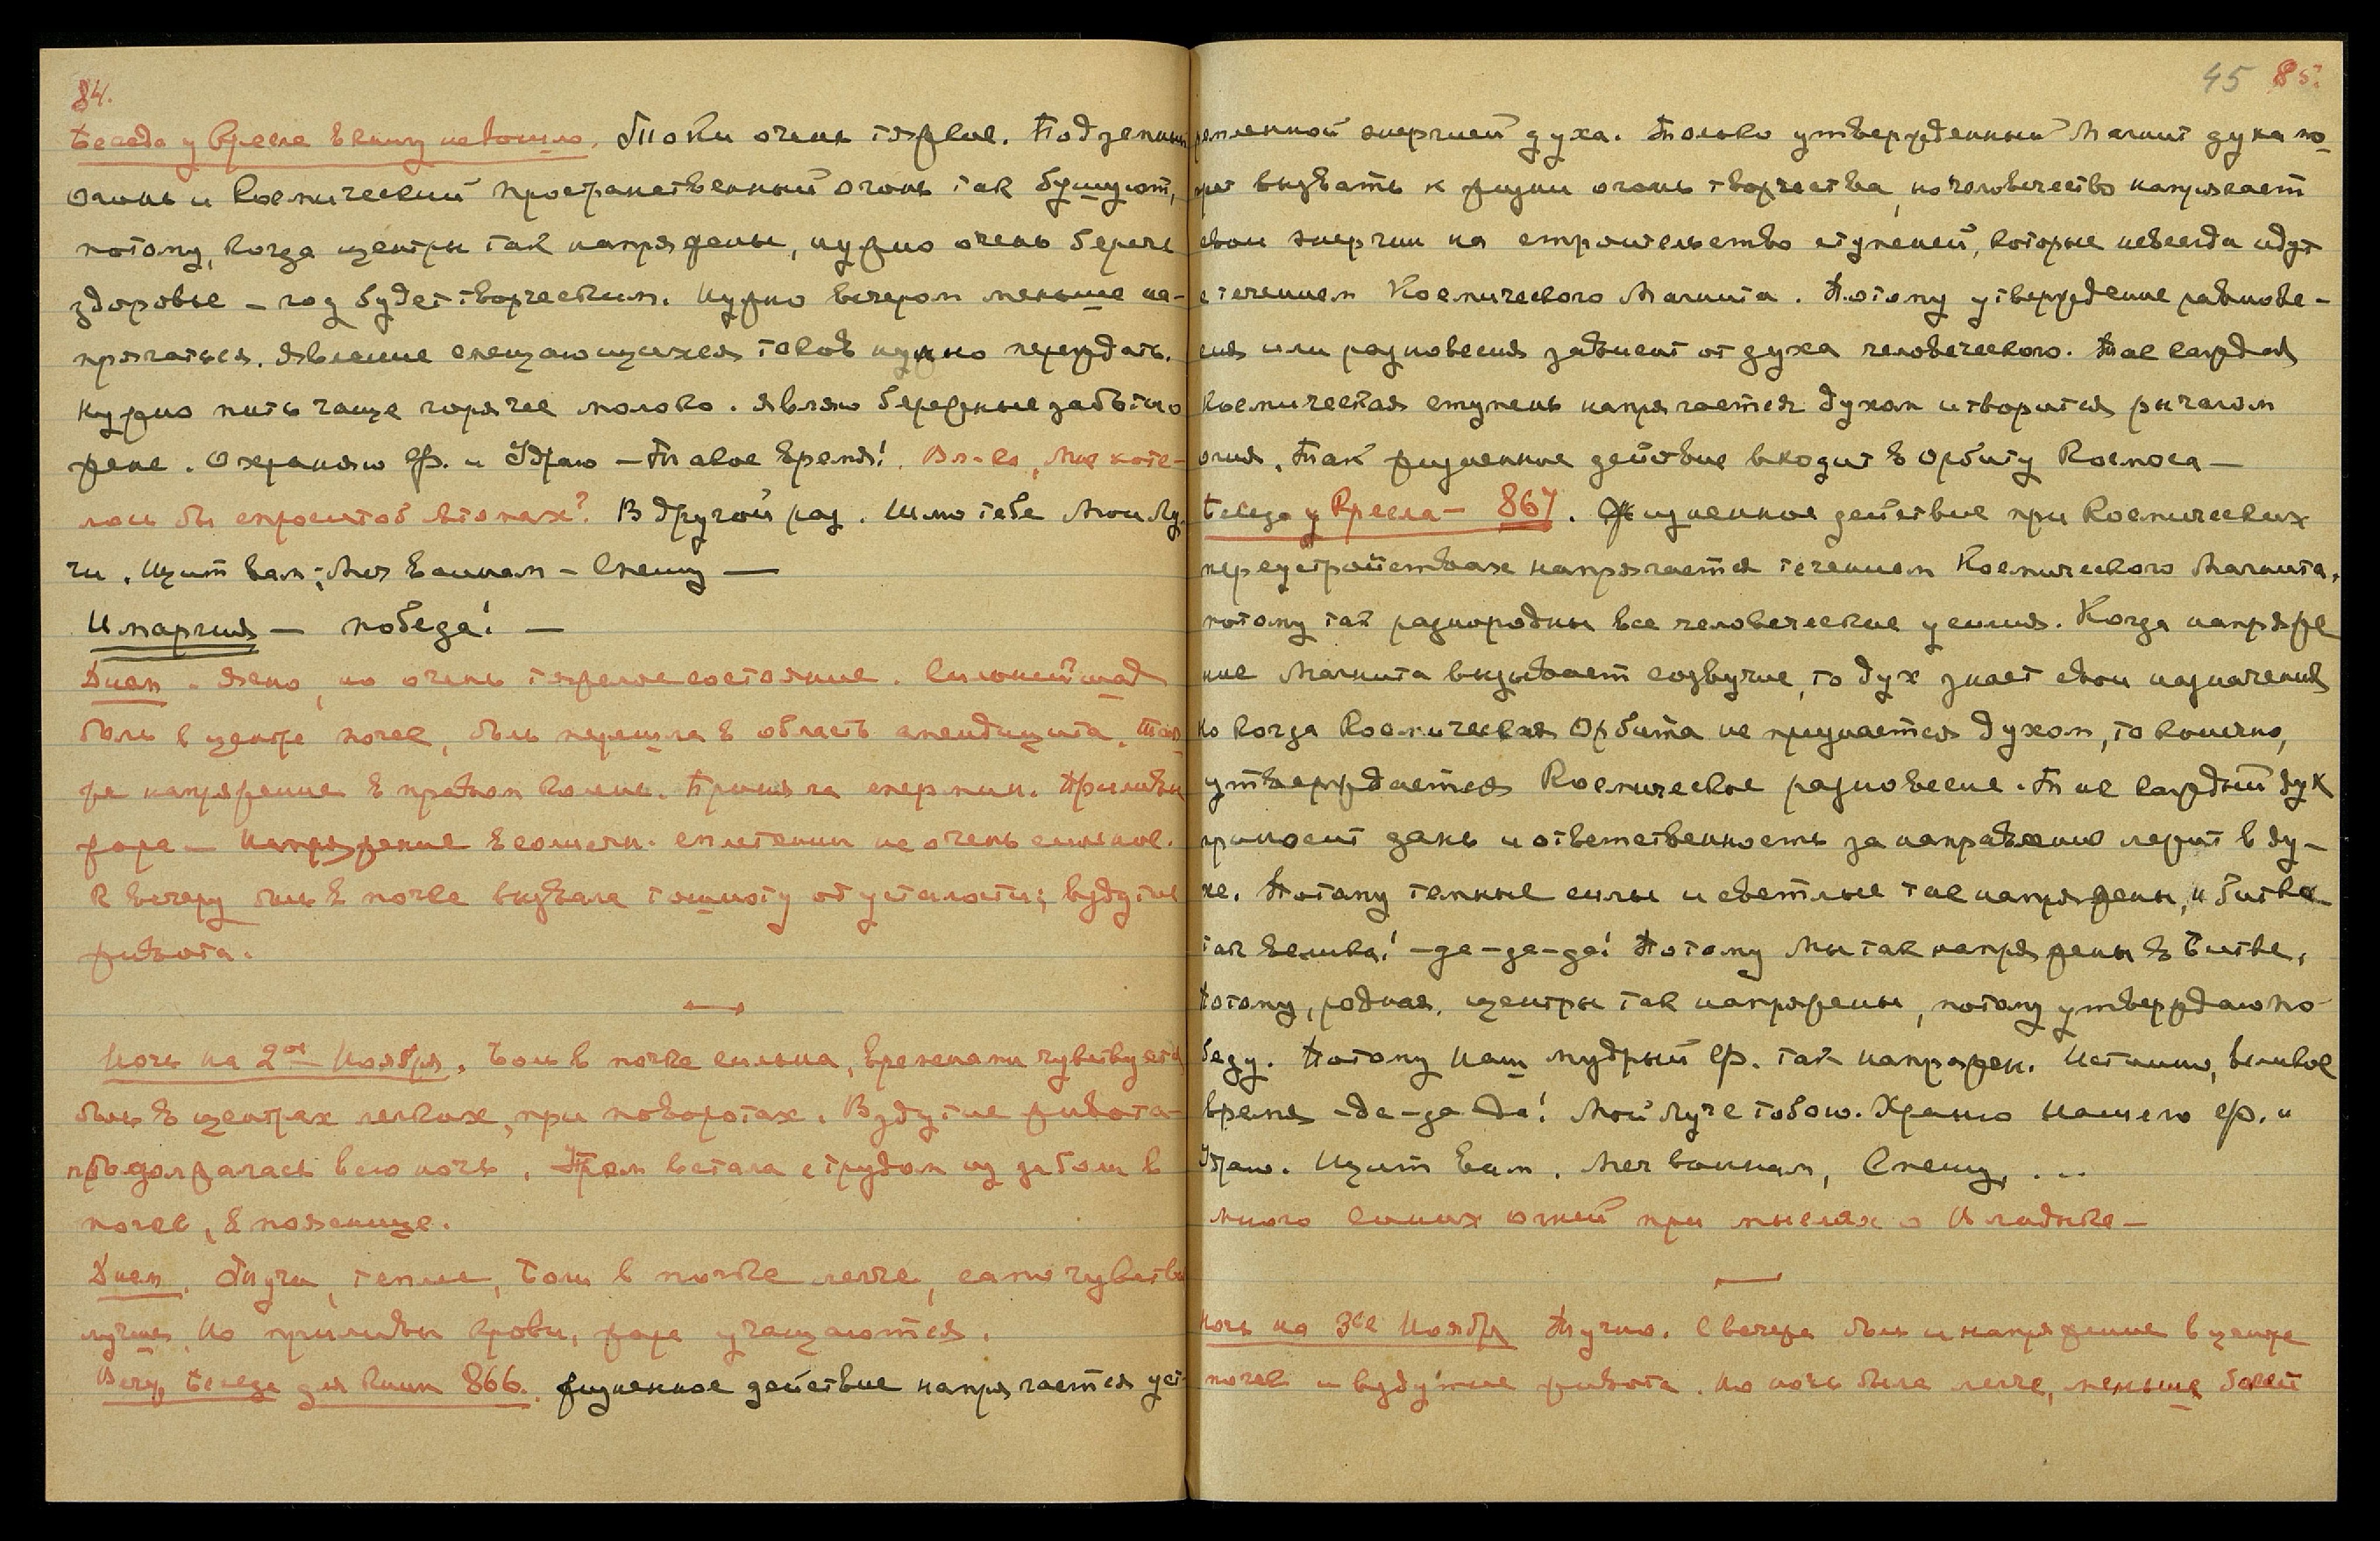 84.
Беседа у Кресла в книгу не вошло. Токи очень тяжкие. Подземный
огонь и Космический пространственный огонь так бушуют,
потому, когда центры так напряжены, нужно очень беречь
здоровье – год будет творческим. Нужно вечером меньше на-
прягаться. Явление смещающихся токов нужно переждать.
Нужно пить чаще горячее молоко. Являю бережные заботы о
жене. Охраняю Ф. и Удраю – Такое время! Вл-ка, Мне хоте-
лось бы спросить об атомах? В другой раз. Шлю тебе Мои Лу-
чи. Щит вам; Меч воинам – Спешу —
Имаргия — победа! —
Днем – Ясно, но очень тяжелое состояние. Сильнейшая
боль в центре почек, боль перешла в область апендицита. Так
же напряжение в правом колене. Приняла спермин. Приливы
жара — Напряжение в солнечн. сплетении не очень сильное.
К вечеру боль в почке вызвала тошноту от усталости; вздутие
живота.
Ночь на 2ое Ноября. Боль в почке сильна, временами чувствуется
боль в центрах легких, при поворотах. Вздутие живота
продолжалась всю ночь. Утром встала с трудом из за боли в
почек, в пояснице.
Днем. Тучи, теплее, боль в почке легче, само чувствие
лучше, но приливы крови, жара учащаются.
Веч. Беседа для книги 866. Жизненное действие напрягается уст-
45 85.
ремленной энергией духа. Только утвержденный Магнит духа мо-
жет вызвать к жизни огонь творчества, но человечество напрягает
свои энергии на строительство ступеней, которые не всегда идут
с течением Космического Магнита. Потому утверждение равнове-
сия или разновесия зависит от духа человеческого. Так каждая
космическая ступень напрягается духом и творится рычагом
огня. Так жизненное действие входит в орбиту Космоса —
Беседа у Кресла – 867. Жизненное действие при Космических
переустройствах напрягается течением Космического Магнита,
потому так разнородны все человеческие усилия. Когда напряже
ние Магнита вызывает созвучие, то дух знает свои назначения
но когда Космическая Орбита не признается духом, то конечно,
утверждается Космическое разновесие. Так каждый дух
приносит дань и ответственность за напряжение лежит в ду-
хе. Потому темные силы и светлые так напряжены, и битва
так велика! – да – да – да! Потому Мы так напряжены в Битве,
потому, родная, центры так напряжены, потому утверждаю по-
беду. Потому Наш мудрый Ф. так напряжен. Истинно, великое
время – да – да – Да! Мой Луч с тобою. Храню нашего Ф. и
Удраю. Щит вам. Меч воинам, Спешу, ...
Много синих огней при мыслях о Владыке —
Ночь на 3ье Ноября Тучно. С вечера боль и напряжение в центре
почек и вздутие живота. Но ночь была легче, меньше болей